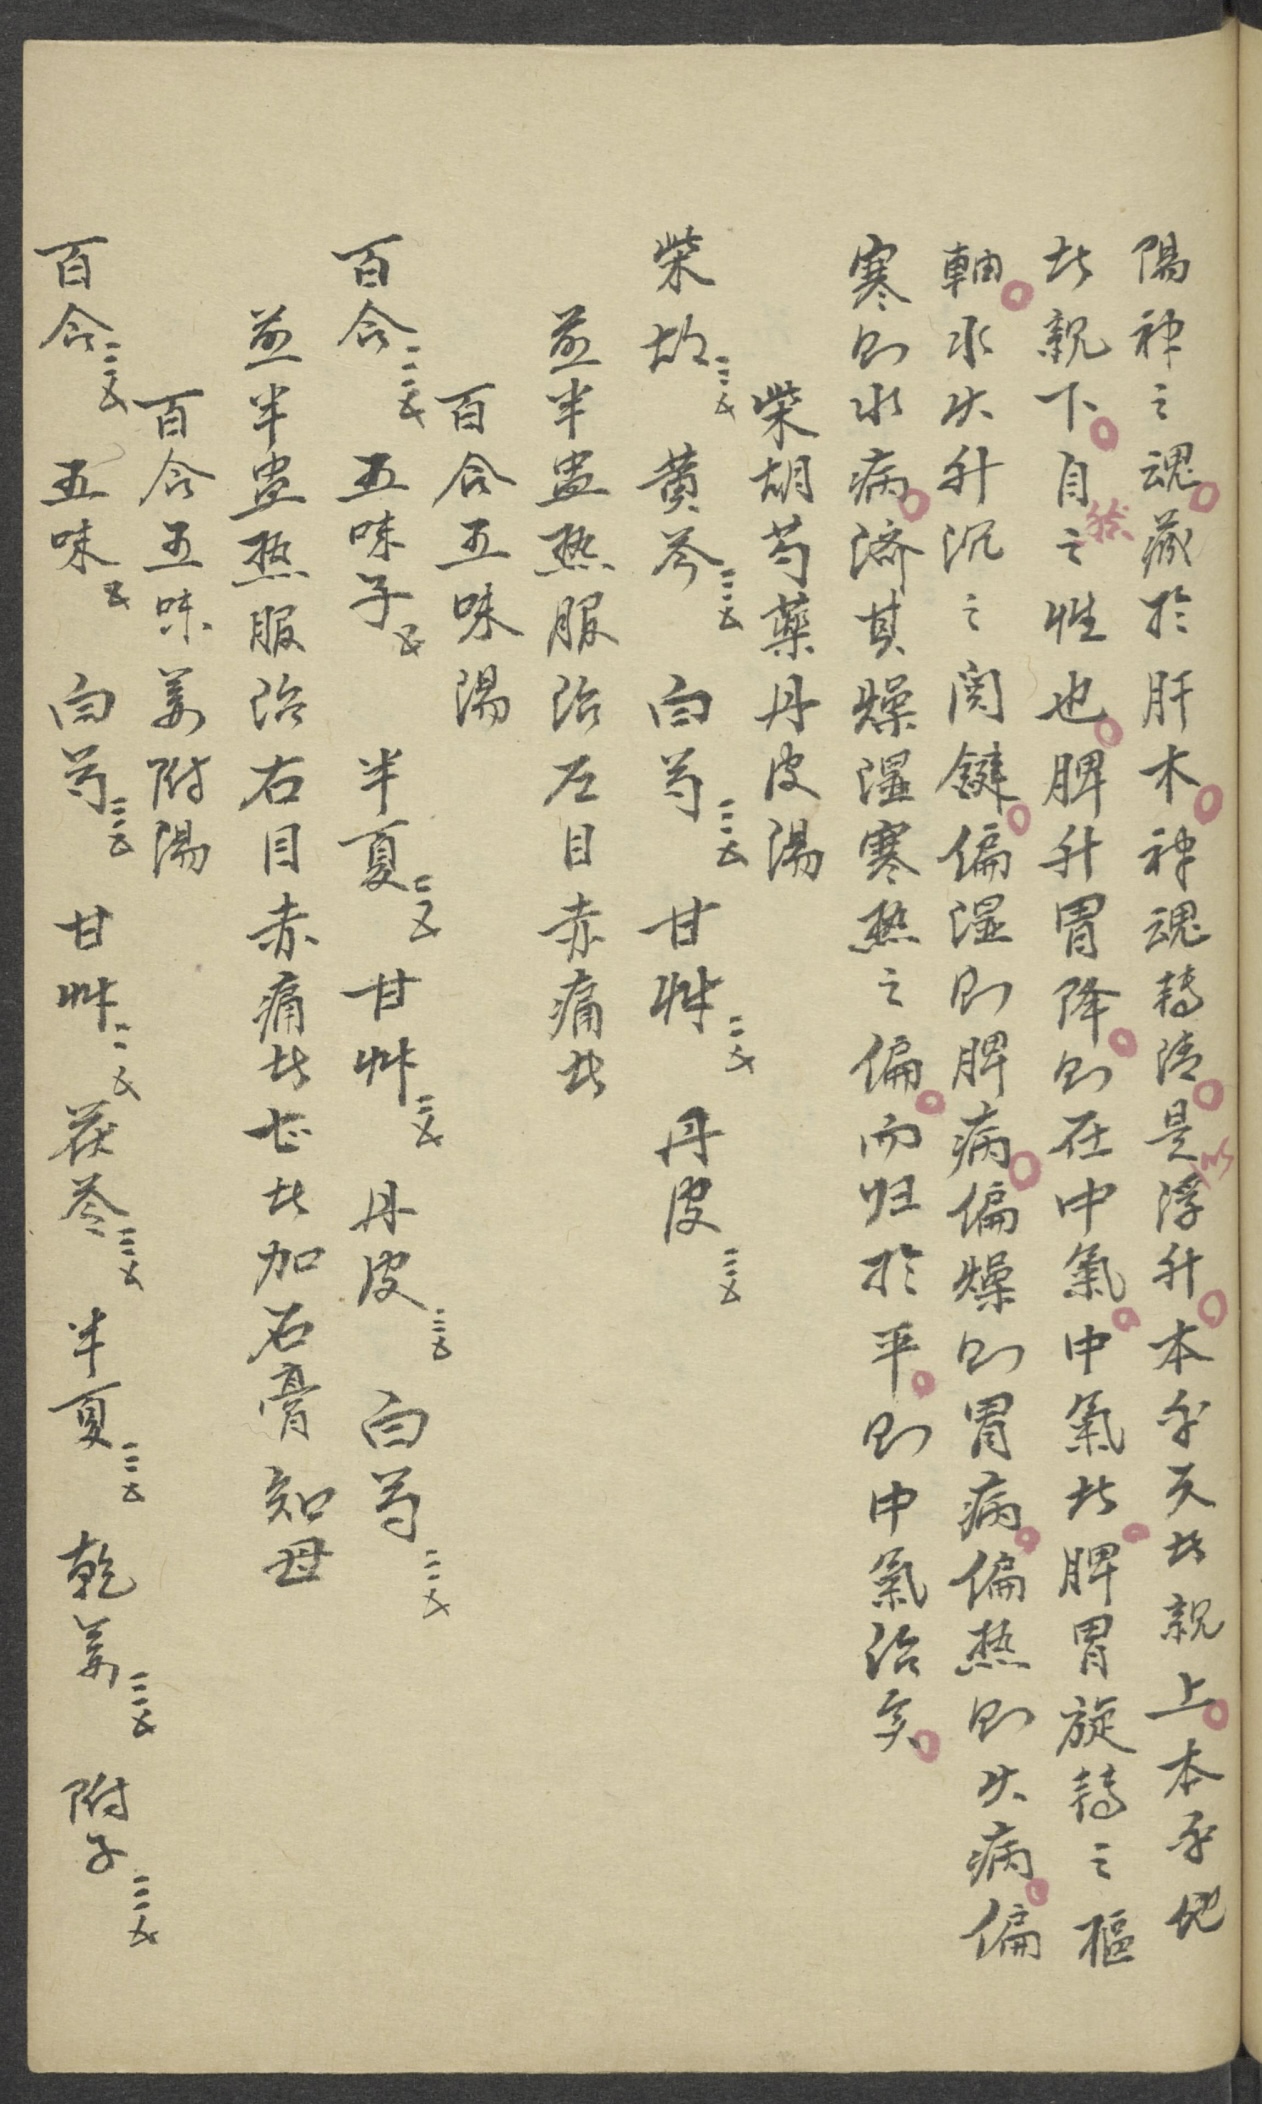 陽神之魂。藏於肝木。神魂轉清。是以浮升。本乎天者親上。本乎地
者親下。自然之性也。脾升胃降。則在中氣。中氣者。脾胃旋轉之樞
軸。水火升沉之関鍵。偏湿則脾病。偏燥則胃病。偏热則火病。偏
寒則水病。濟其燥濕寒热之偏。而归於平。則中氣治矣。
柴胡芍藥丹皮湯
柴胡三戋 黄芩三戋 白芍三戋 甘艸二戋 丹皮三戋
煎半盃热服治左目赤痛者
百合五味湯
百合三戋 五味子戋 半夏二戋 甘艸二戋 丹皮三戋 白芍三戋
煎半盃热服治右目赤痛者甚者加石膏知母
百合五味姜附湯
百合三戋 五味戋 白芍三戋 甘艸二戋 茯苓三戋 半夏三戋 乾姜三戋 附子三戋